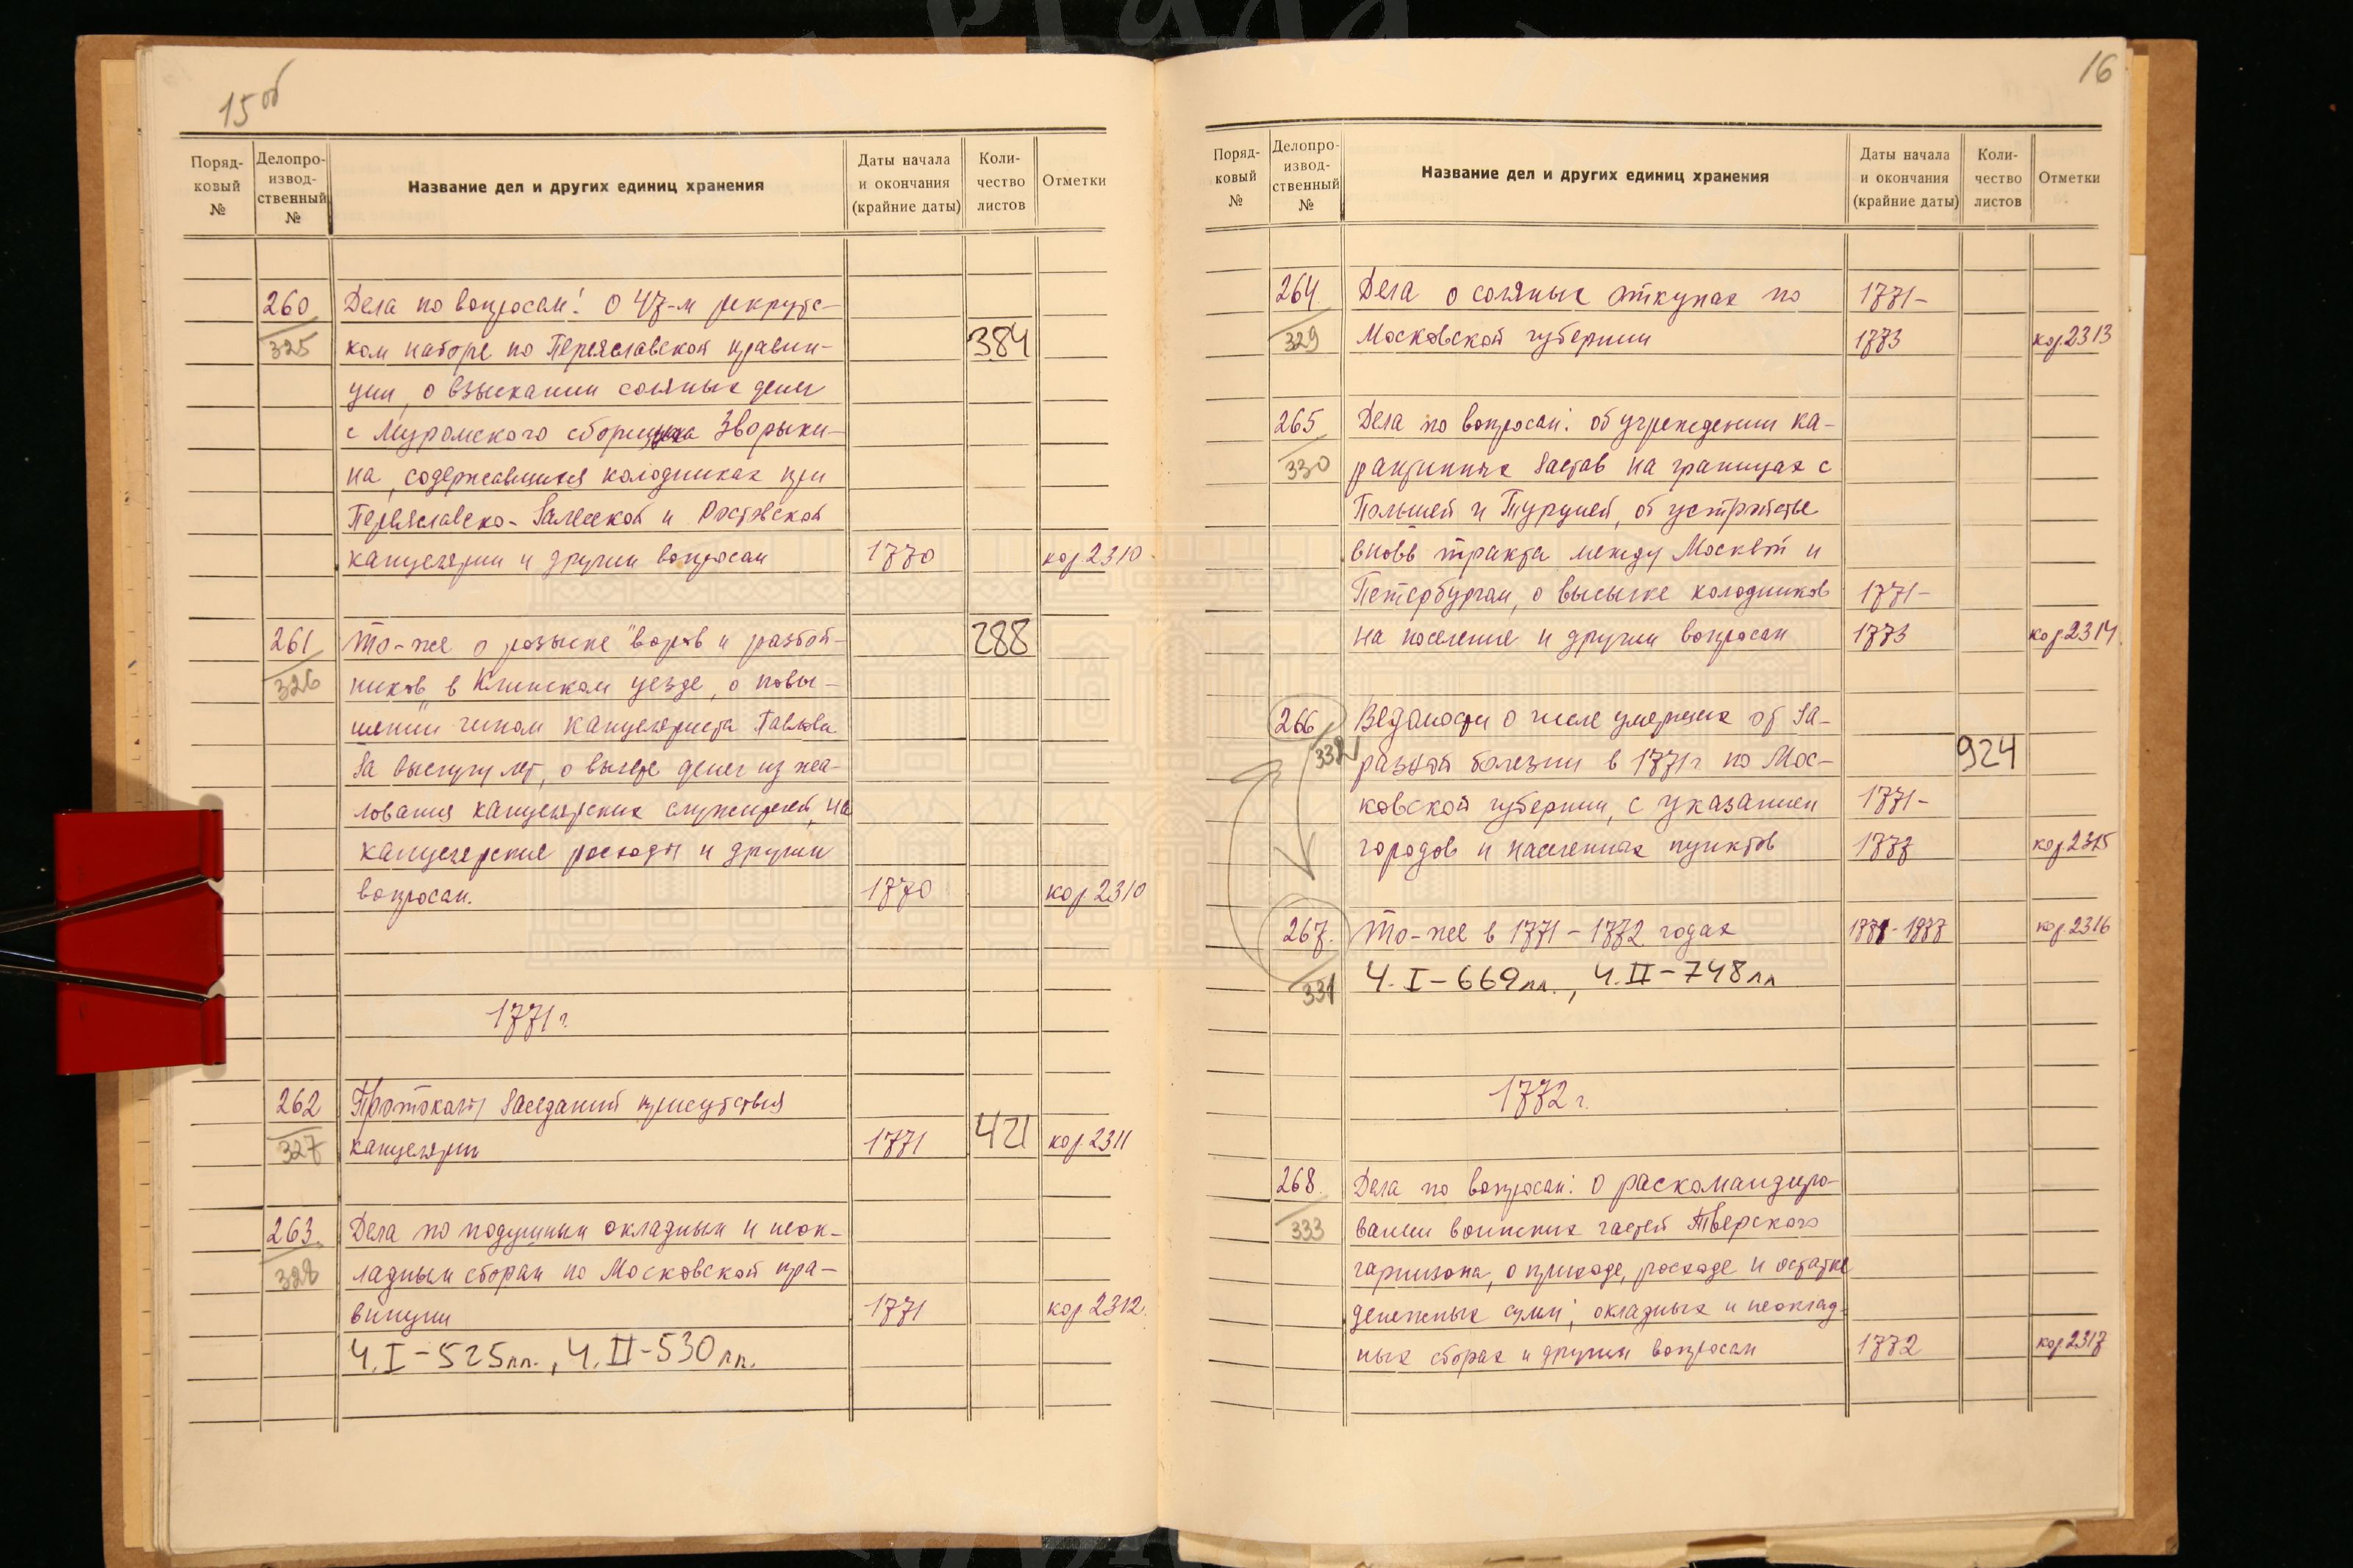 15об
Поряд-
ковый
№
Делопро-
извод-
ственный
№
Название дел и других единиц хранения
Даты начала
и окончания
(крайние даты)
Коли-
чество
листов
Отметки
260 Дела по вопросам: о 47-м рекрутс-
325 ком наборе по Переяславской правин- 384
ции, о взыскании соляных денег
с Муромского сборщика Зворыки-
на, содержавшихся колодниках при
Переяславско-Залесской и Ростовской
канцелярии и другим вопросам 1770 кор.2310
261 То-же о розыске "воров и разбой- 288
326 ников" в Клинском уезде, о повы-
шении чином канцеляриста Павлова
за выслугу лет, о вычете денег из жа-
лования канцелярских служителей на
канцелярские расходы и другим
вопросам. 1770 кор.2310
1771 г.
262 Протоколы заседаний присутствия
327 канцелярии 1771 421 кор.2311
263. Дела по подушным окладным и неок-
328 ладным сборам по Московской пра-
винции 1771 кор.2312.
Ч.I-525лл., Ч.II-530лл.
16
Поряд-
ковый
№
Делопро-
извод-
ственный
№
Название дел и других единиц хранения
Даты начала
и окончания
(крайние даты)
Коли-
чество
листов
Отметки
264. Дела о соляных откупах по 1771-
329 Московской губернии 1773 кор.2313
265 Дела по вопросам: об учреждении ка-
330 рантинных застав на границах с
Польшей и Турцией, об устройстве
вновь тракта между Москвой и
Петербургом, о высылке колодников 1771-
на поселение и другим вопросам 1773 кор.2314.
266 Ведомости о числе умерших от за-
332 разной болезни в 1771г. по Мос- 924
ковской губернии, с указанием 1771-
городов и населенных пунктов 1777 кор.2315
267. То-же в 1771-1772 годах 1771-1777 кор.2316
331 Ч.I-669лл., Ч.II-748лл
1772 г.
268. Дела по вопросам: о раскомандиро-
333 вании воинских частей Тверского
гарнизона, о приходе, расходе и остатке
денежных сумм; окладных и неоклад-
ных сборах и другим вопросам 1772 кор.2317